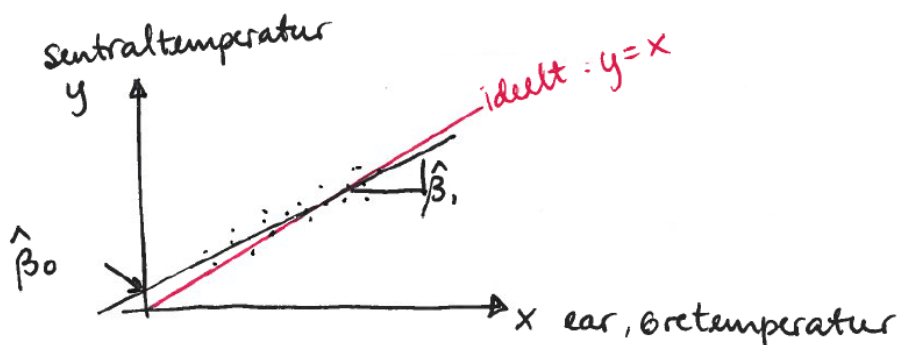 sentraltemperatur
y
ideelt : y=x
β̂₁
β̂₀
x ear, øretemperatur